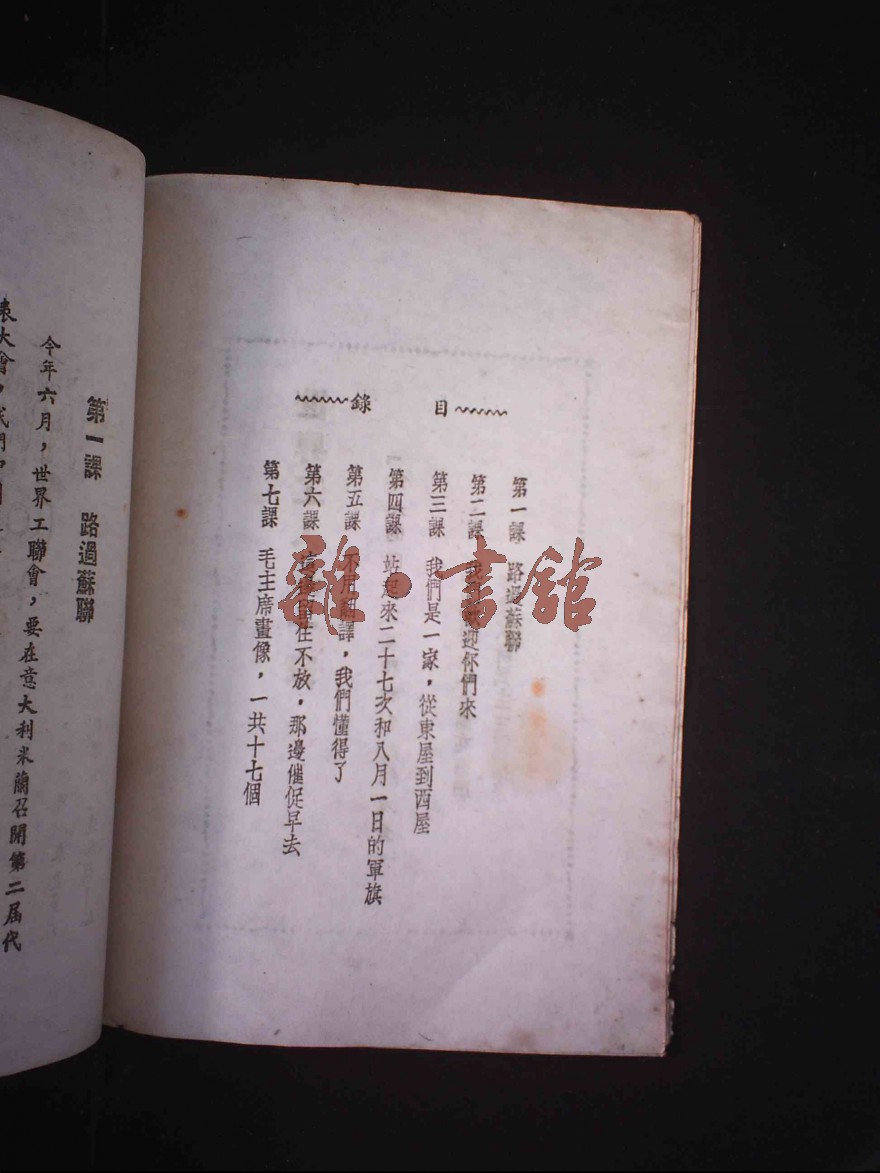 目錄
第一課 路過蘇聯
第二課 我 迎你們來
第三課 我們是一家，從東屋到西屋
第四課 站起來二十七次和八月一日的軍旗
第五課 不用翻譯，我們懂得了
第六課 這 留住不放，那邊催促早去
第七課 毛主席畫像，一共十七個
第一課 路過蘇聯
今年六月，世界工聯會，要在意大利米蘭召開第二届代
表大會，我們中國
雜·書館